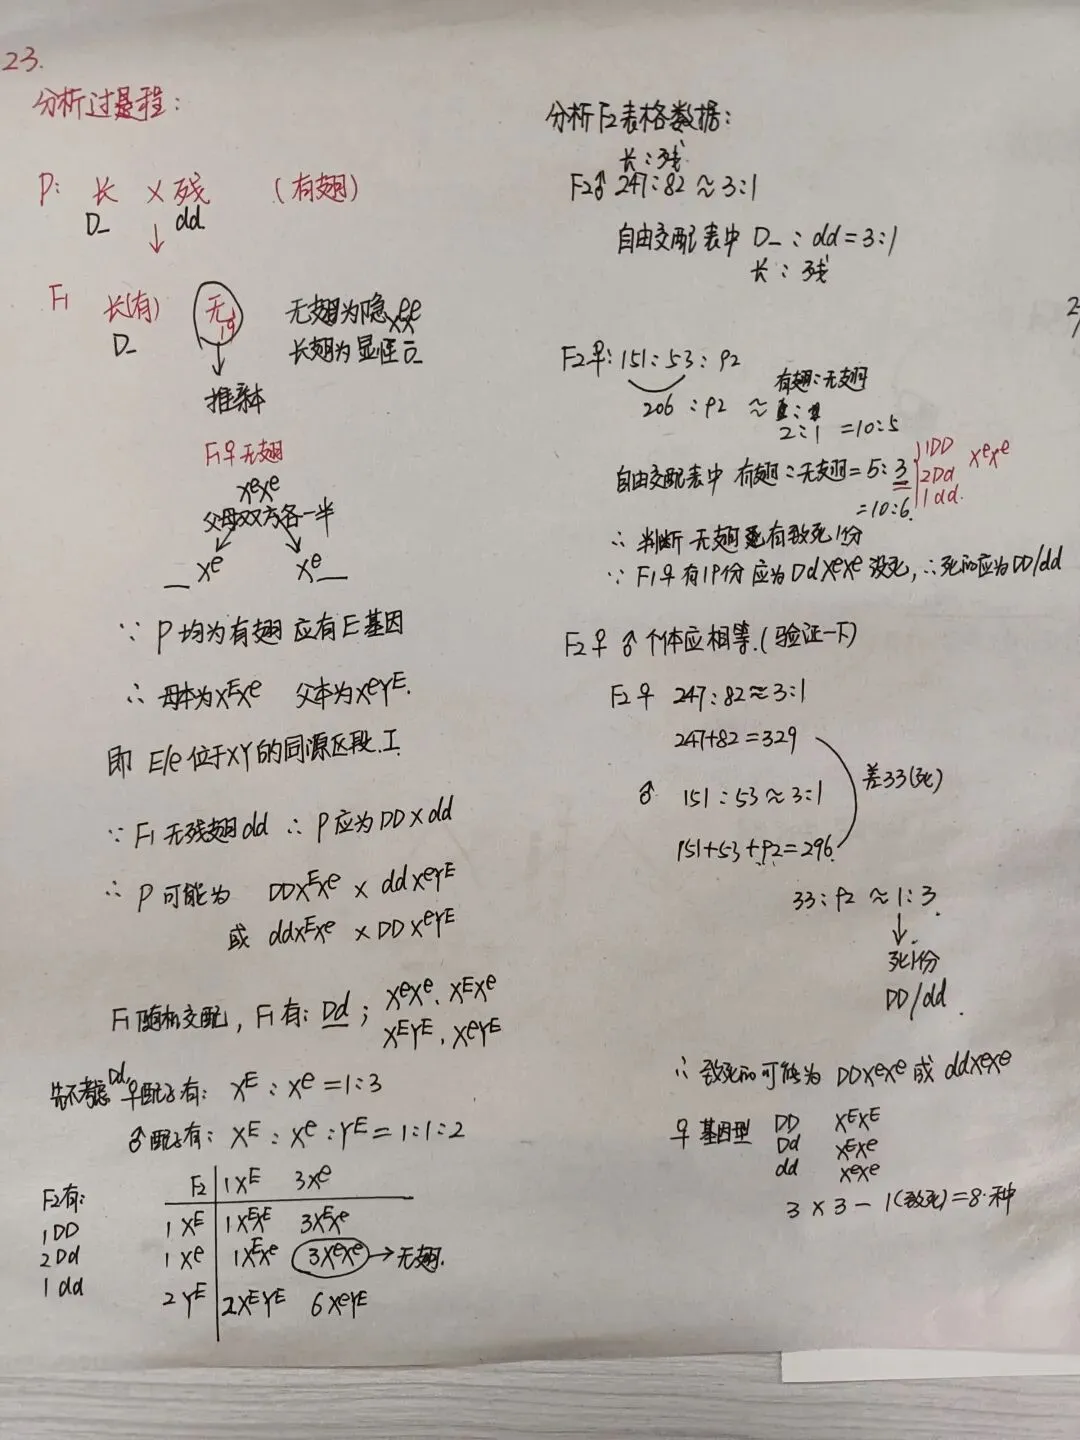 23.
分析过程:
P: 长 × 残 (有翅)
D_ dd
F₁ 长(有) 无 无翅为隐 XᵉXᵉ
1♀
D_ 长翅为显性
推亲本
F₁♀无翅
XᵉXᵉ
父母双方各一半
_Xᵉ Xᵉ_
∵ P均为有翅 应有E基因
∴ 母本为XᴱXᵉ 父本为XᵉYᴱ.
即 E/e位于XY的同源区段.I
∵ F₁无残翅dd ∴ P应为DD×dd
∴ P可能为 DDXᴱXᵉ × ddXᵉYᴱ
或 ddXᴱXᵉ × DDXᵉYᴱ
F₁随机交配, F₁有: Dd ; XᵉXᵉ. XᴱXᵉ
XᴱYᴱ. XᵉYᴱ
先不考虑Dd, ♀配子有: Xᴱ : Xᵉ = 1:3
♂配子有: Xᴱ : Xᵉ : Yᴱ = 1:1:2
F₂有:
1DD
2Dd
1dd
F₂ 1Xᴱ 3Xᵉ
1Xᴱ 1XᴱXᴱ 3XᴱXᵉ
1Xᵉ 1XᴱXᵉ 3XᵉXᵉ → 无翅.
2Yᴱ 2XᴱYᴱ 6XᵉYᴱ
分析F₂表格数据:
长:残
F₂♂ 247:82≈3:1
自由交配表中 D_ : dd=3:1
长 : 残
F₂♀: 151:53:92
有翅:无翅
206 :92 ≈
2:1 =10:5
自由交配表中 有翅:无翅=5:3
1DD
2Dd XᵉXᵉ
1dd.
=10:6.
∴ 判断无翅有致死1份
∵ F₁♀有1份应为DdXᵉXᵉ没死, ∴死的应为DD/dd
F₂♀♂个体应相等.(验证一下)
F₂♀ 247:82≈3:1
247+82=329
♂ 151:53≈3:1
差33(死)
151+53+92=296
33:92 ≈1:3.
死1份
DD/dd.
∴ 致死的可能为 DDXᵉXᵉ或 ddXᵉXᵉ
♀基因型 DD XᴱXᴱ
Dd XᴱXᵉ
dd XᵉXᵉ
3 × 3 - 1(致死)=8.种
2